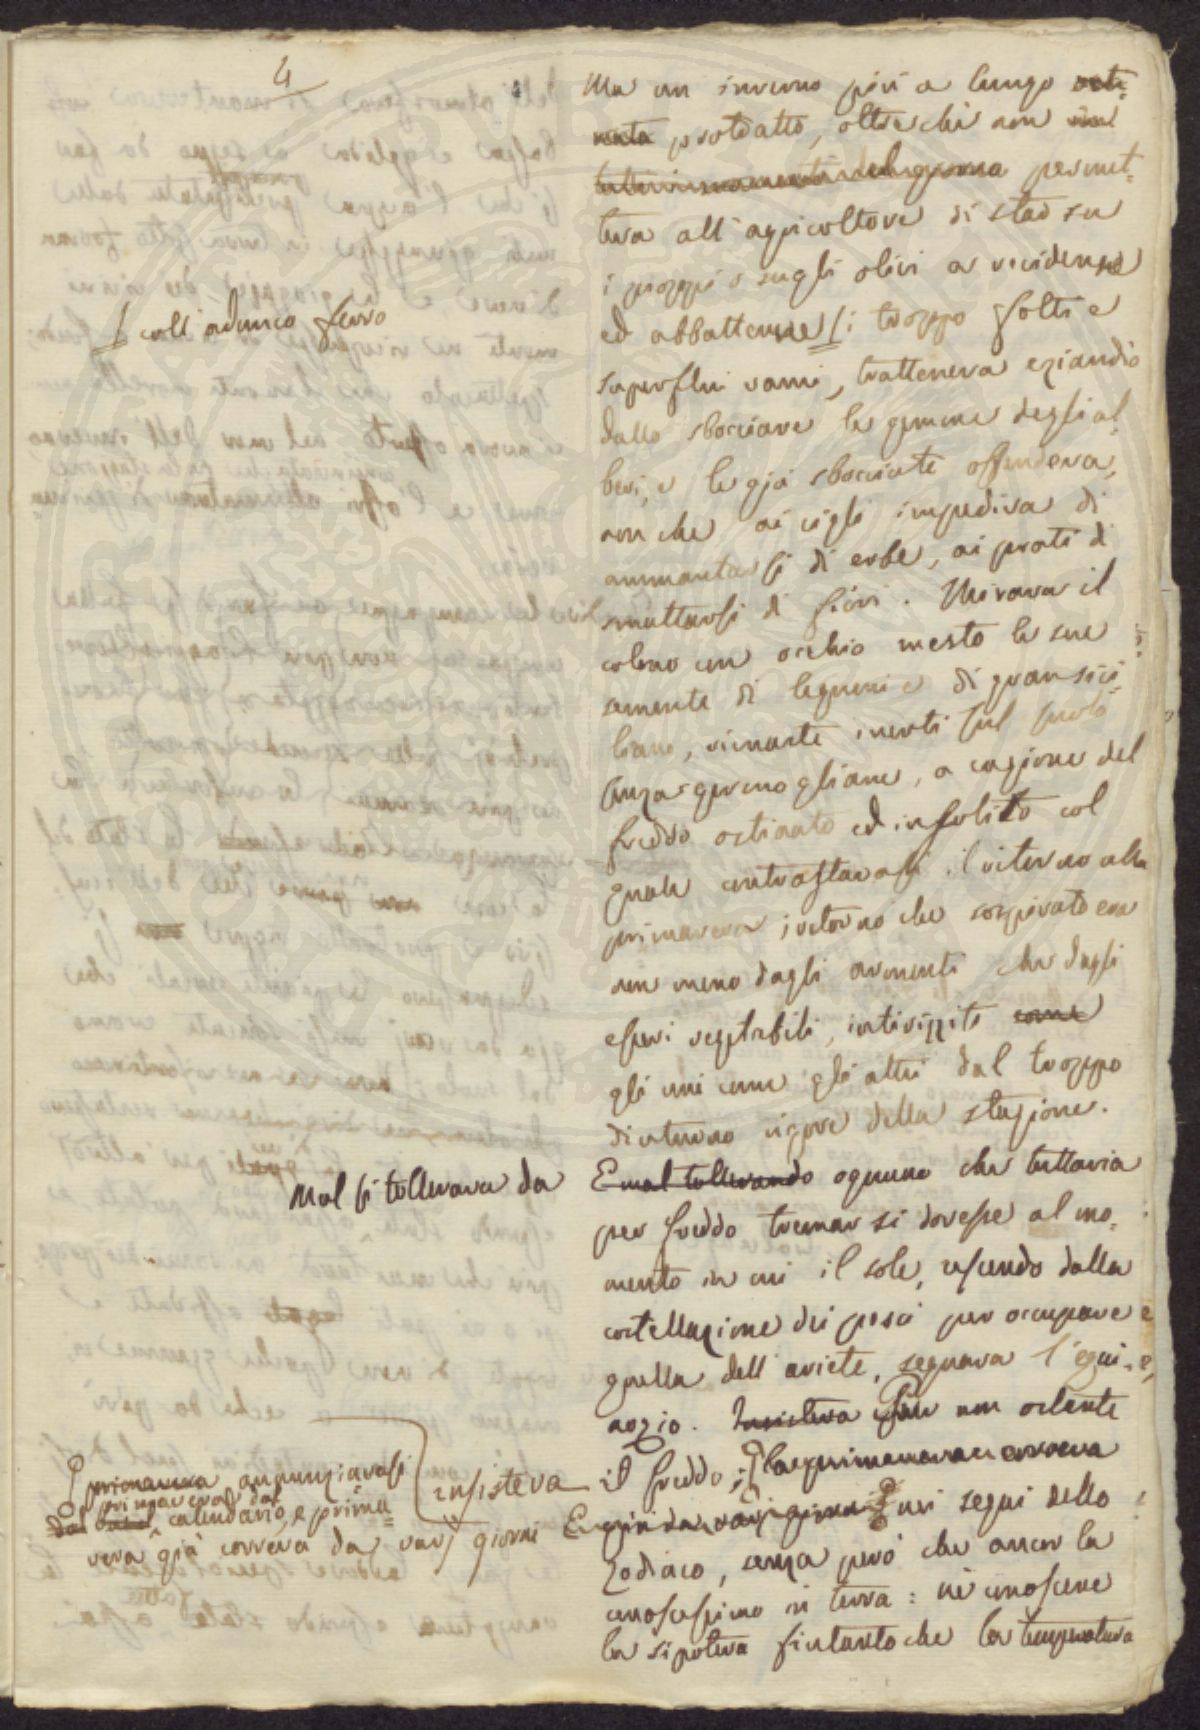 4
Ma un inverno più a lungo osti-
nato protratto, oltre che non
permet-
teva all'agricoltore di star su
i pioppi o sugli olivi a reciderne
ed abbatterne ⌠i troppo folti e
superflui rami, tratteneva eziandio
dallo sbocciare le gemme degli al-
beri, e le già sbocciate offendeva,
anche ai cigli impediva di
ammantarsi di erbe, ai prati di
smaltarsi di fiori. Mirava il
colono con occhio mesto le sue
sementi di legumi e di gran sici-
liano, rimaste inerti sul suolo
senza germogliare, a cagione del
freddo ostinato ed insolito col
quale contrastavasi il ritorno alla
primavera, ritorno che sospirato era
non meno dagli armenti che dagli
esseri vegetabili, intirizziti come
gli uni come gli altri dal troppo
diuturno rigore della stagione.
E mal tollerando ognuno che tuttavia
per freddo tremar si dovesse al mo-
mento in cui il sole, uscendo dalla
costellazione dei pesci per occupare
quella dell'ariete, segnava l'equi-
nozio. Insisteva pur non ostante
il freddo; la primavera correva
E già da varj giorni nei segni dello
zodiaco, senza però che ancor la
conoscessimo in terra: nè conoscere
la si poteva fintanto che la temperatura
⌠ coll'adunco ferro
Mal si tollerava da
insisteva
primavera annunziavasi
primavera dal
dal calendario, e prima-
vera già correva da varj giorni